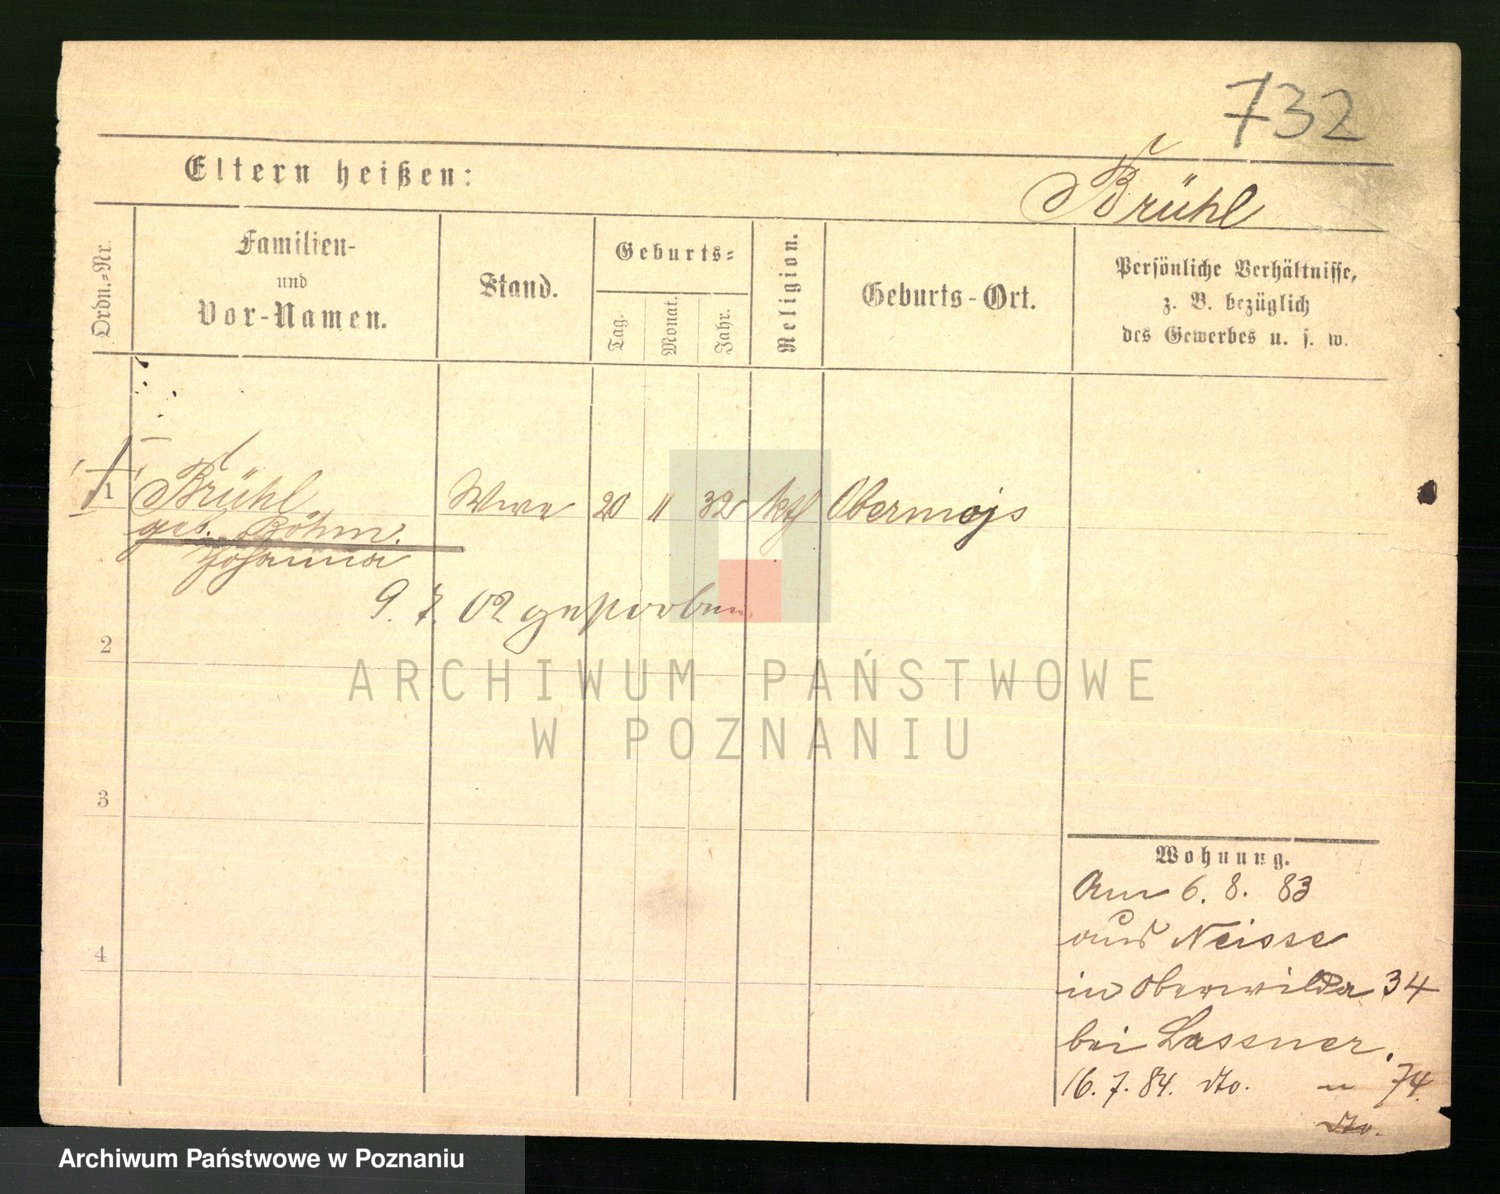 732
Eltern heißen:
Brühl
Ordn.-Nr.
Familien-
und
Vor-Namen.
Stand.
Geburts-
Tag.
Monat.
Jahr.
Religion.
Geburts-Ort.
Persönliche Verhältnisse,
z. B. bezüglich
des Gewerbes u. s. w.
1 Brühl Wwe 20 11 32 kth Obermojs
geb. Böhm.
Johanna
9. 7. 02 gestorben
2
ARCHIWUM PAŃSTWOWE
W POZNANIU
3
4
Wohnung.
Am 6. 8. 83
aus Neisse
in Oberwilda 34
bei Lassner.
16. 7. 84. dto. " 74.
dto.
Archiwum Państwowe w Poznaniu